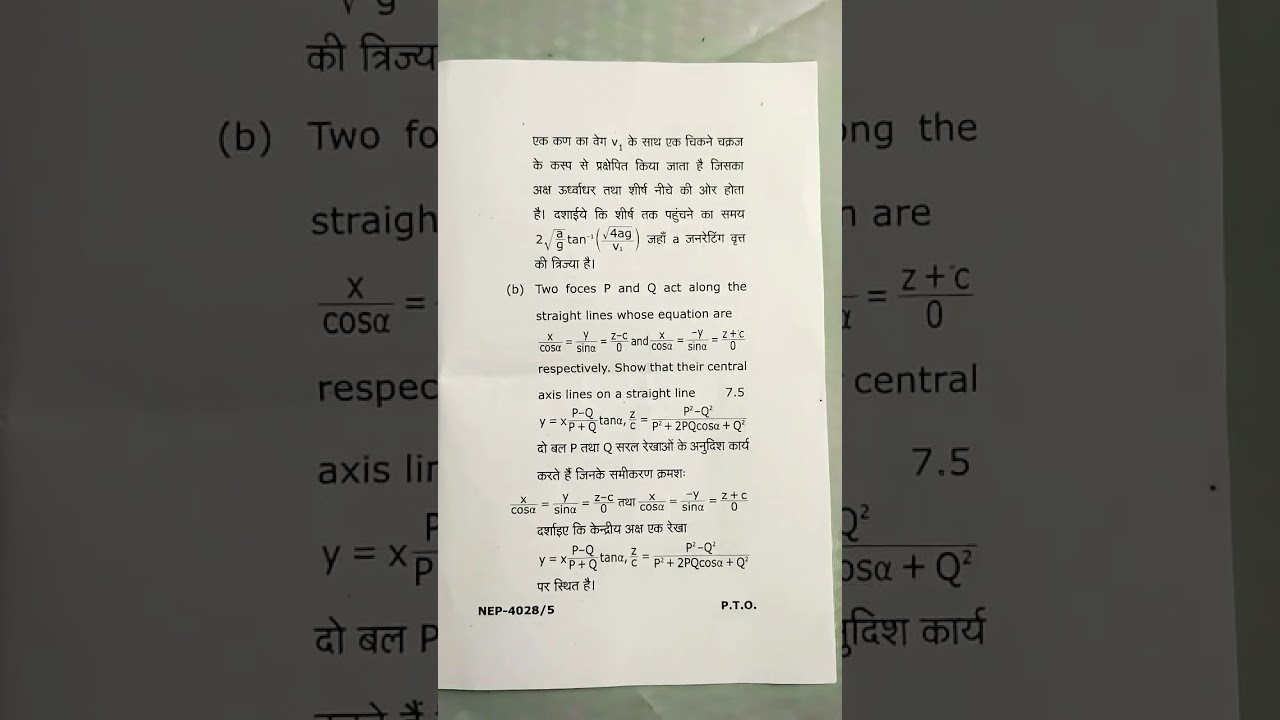 एक कण का वेग v₁ के साथ एक चिकने चक्रज
के कस्प से प्रक्षेपित किया जाता है जिसका
अक्ष ऊर्ध्वाधर तथा शीर्ष नीचे की ओर होता
है। दशाईये कि शीर्ष तक पहुंचने का समय
2√(a/g) tan⁻¹(√4ag/v₁) जहाँ a जनरेटिंग वृत्त
की त्रिज्या है।
(b) Two foces P and Q act along the
straight lines whose equation are
x/cosα = y/sinα = z−c/0 and x/cosα = −y/sinα = z+c/0
respectively. Show that their central
axis lines on a straight line 7.5
y = x P−Q/P+Q tanα, z/c = P²−Q²/P²+2PQcosα+Q²
दो बल P तथा Q सरल रेखाओं के अनुदिश कार्य
करते हैं जिनके समीकरण क्रमशः
x/cosα = y/sinα = z−c/0 तथा x/cosα = −y/sinα = z+c/0
दर्शाइए कि केन्द्रीय अक्ष एक रेखा
y = x P−Q/P+Q tanα, z/c = P²−Q²/P²+2PQcosα+Q²
पर स्थित है।
NEP-4028/5 P.T.O.